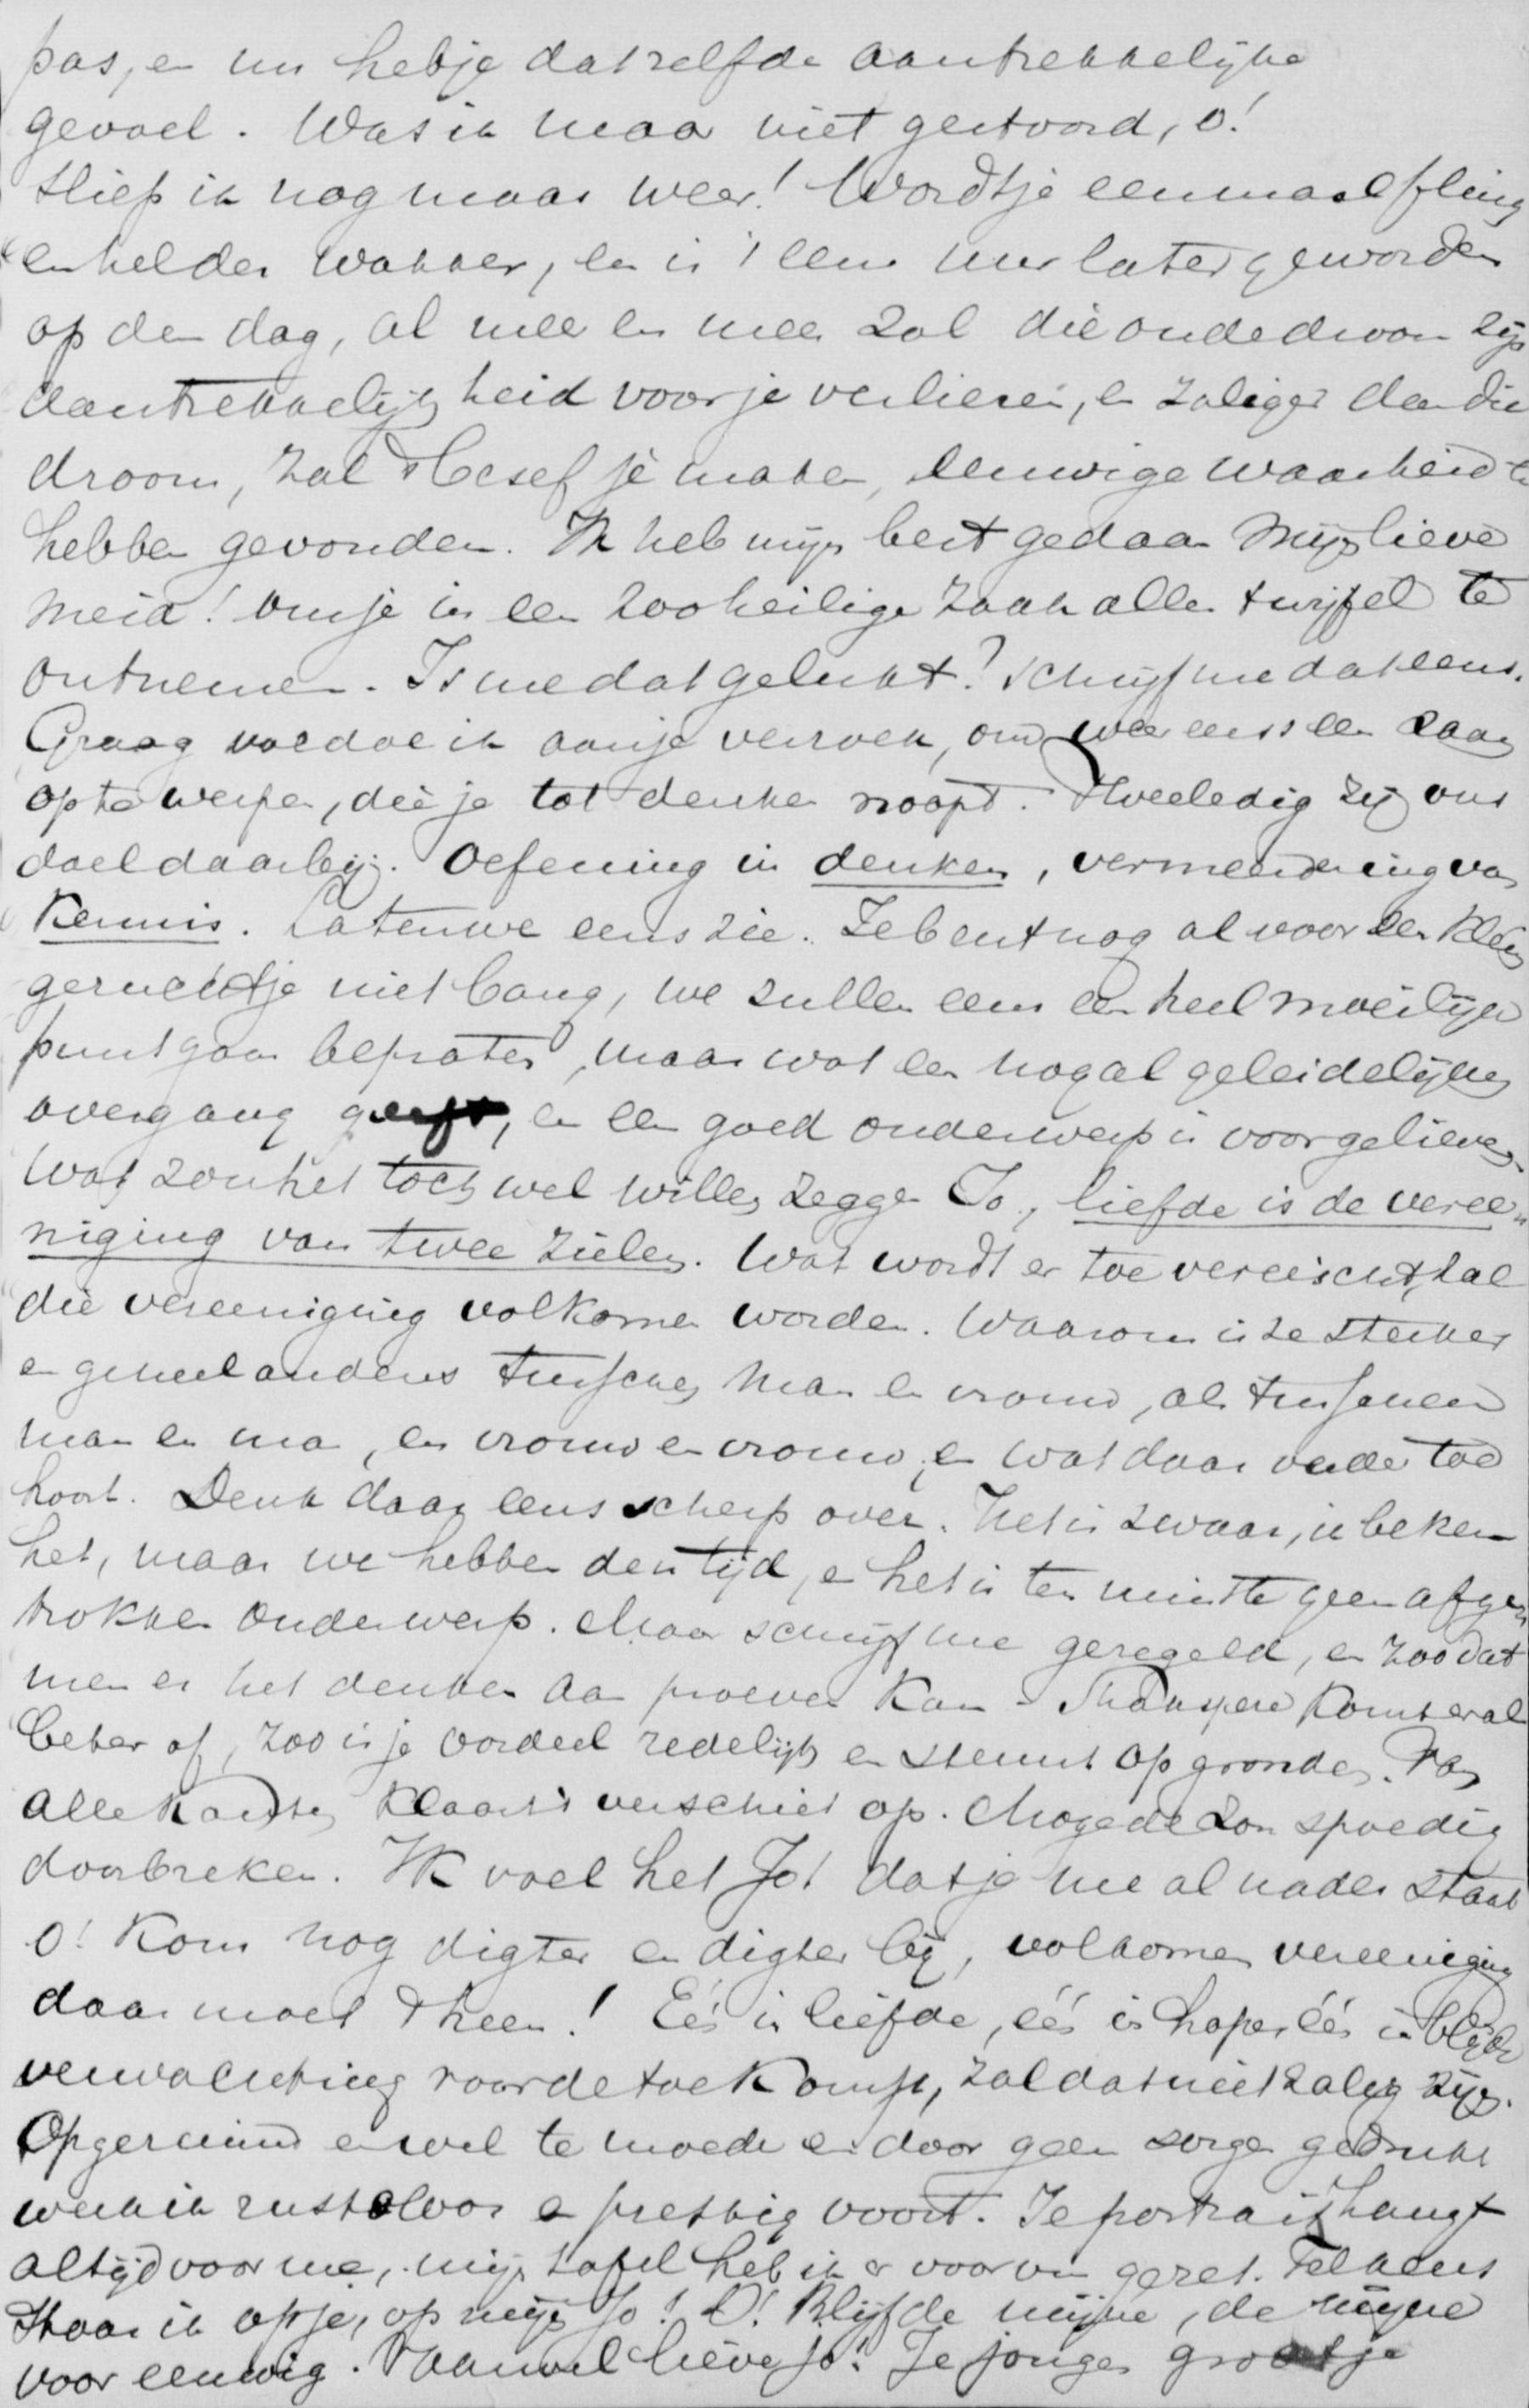 pas, en nu heb je datzelfde aantrekkelijke
gevoel. Was ik maar niet gestoord, o!
sliep ik nog maar weer! Wordt je eenmaal flink
en helder wakker, en is 't een uur later geworden
op den dag, al meer en meer zal die oude droom zijn
aantrekkelijkheid voor je verliezen, en zaliger dan die
droom, zal 't besef je maken, eeuwige waarheid te
hebben gevonden. Ik heb mijn best gedaan mijn lieve
meid! om je in een zoo heilige zaak allen twijfel te
ontnemen. Is me dat gelukt? Schrijf me dat eens.
Graag voldoe ik aan je verzoek, om weer eens een vraag
op te werpen, die je tot denken noopt. Tweeledig zij ons
doel daarbij. Oefening in denken, vermeerdering van
Kennis. Laten we eens zien. Je bent nog al voor een klein
geruchtje niet bang, we zullen eens een heel moeilijk
punt gaan bepraten, maar wat een nogal geleidelijken
overgang geeft, en een goed onderwerp is voor gelieven.
Wat zou het toch wel willen zeggen Jo, liefde is de veree-
niging van twee zielen. Wat wordt er toe vereischt, zal
die vereeniging volkomen worden. Waarom is ze sterker
en geheel anders tusschen man en vrouw, als tusschen
man en man, en vrouw en vrouw, en wat daar verder toe
hoort. Denk daar eens scherp over. Het is zwaar, ik beken
het, maar we hebben den tijd, en het is ten minste geen afge-
trokken onderwerp. Maar schrijf me geregeld, en zoo dat
men er het denken aan proeven kan. Shakspere komt er al
beter af, zoo is je oordeel redelijk en steunt op gronden. Van
alle kanten klaart 't verschiet op. Moge de zon spoedig
doorbreken. Ik voel het Jo! dat je me al nader staat
o! Kom nog digter en digter bij, volkomen vereeniging
daar moet 't heen! Eén in liefde, één in hopen, één in blijde
verwachting voor de toekomst, zal dat niet zalig zijn.
Opgeruimd en wel te moede en door geen zorgen gedrukt
werk ik rusteloos en prettig voort. Je portrait hangt
altijd voor me, mijn tafel heb ik er voor gezet. Telkens
staar ik op je, op mijn Jo! O! Blijf de mijne, de mijne
voor eeuwig. Vaarwel lieve Jo! Je jongen grootje